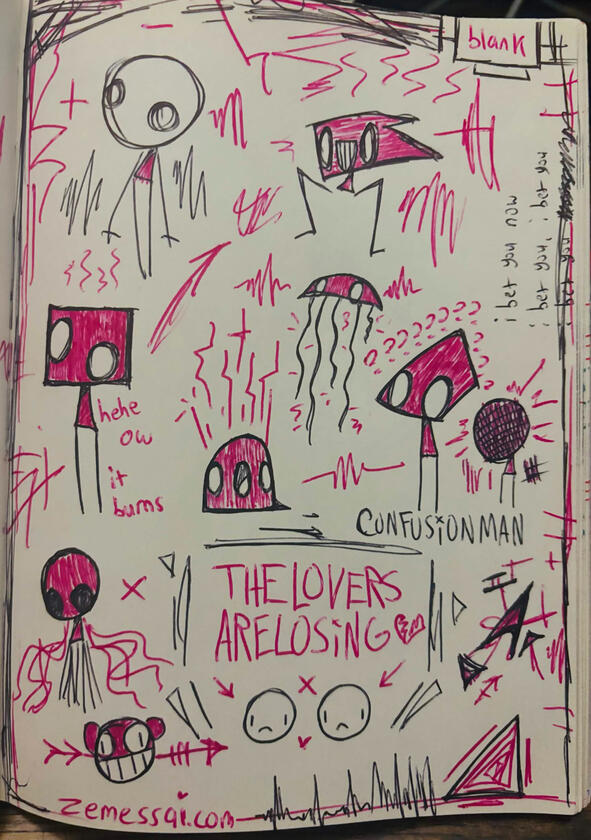 blank
i bet you now
i bet you, i bet you
i bet you
hehe
ow
it
burns
CONFUSiONMAN
THELOVERS
ARELOSiNG
zemessai.com